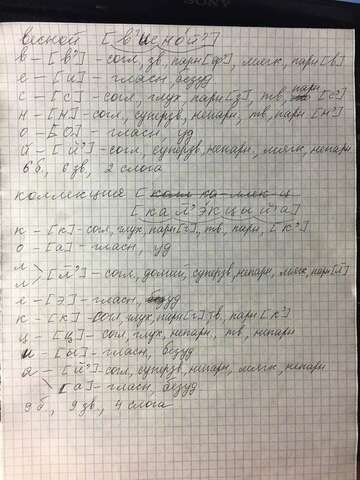 весной [в'иᵉсно́й']
в - [в'] - согл, зв, парн [ф'], мягк, парн [в]
е - [и] - гласн, безуд
с - [с] - согл, глух, парн [з], тв, парн [с']
н - [н] - согл, суперзв, непарн, тв, парн [н']
о - [о] - гласн, уд
й - [й'] - согл, суперзв, непарн, мягк, непарн
6 б, 6 зв, 2 слога
коллекция
[кал'э́кцый'а]
к - [к] - согл, глух, парн [г], тв, парн, [к']
о - [а] - гласн, уд
л
л > [л'] - согл, суперзв, непарн, мягк, парн [л]
е - [э] - гласн, уд
к - [к] - согл, глух, парн [г] тв, парн [к']
ц - [ц] - согл, глух, непарн, тв, непарн
и - [ы] - гласн, безуд
я - [й'] - согл, суперзв, непарн, мягк, непарн
[а] - гласн, безуд
9 б, 9 зв, 4 слога